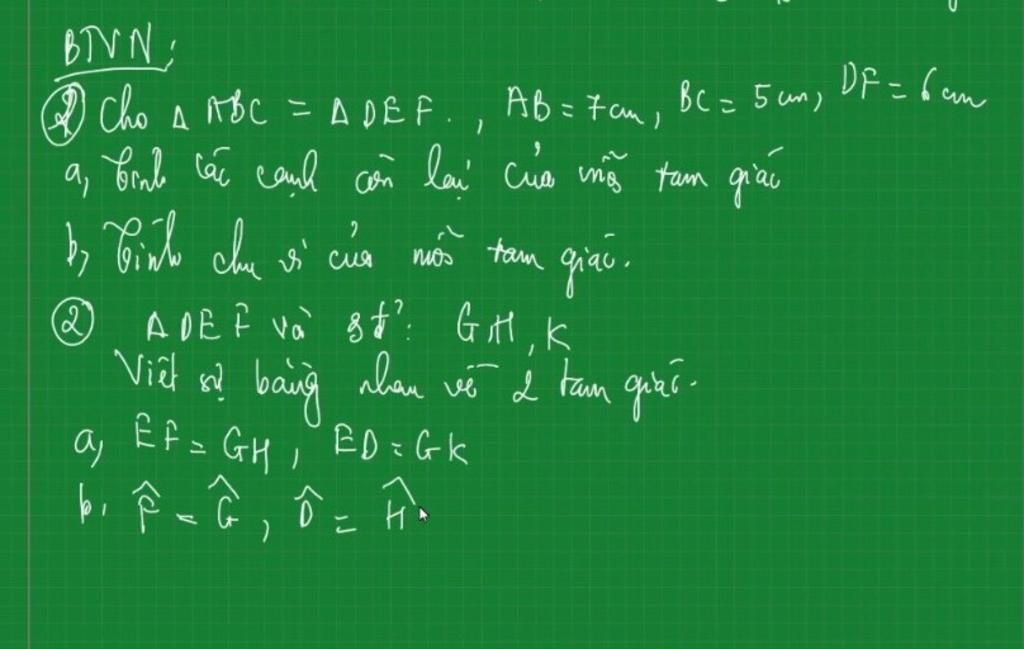 BTVN:
① Cho Δ ABC = Δ DEF., AB = 7cm, BC = 5cm, DF = 6cm
a, Tính các cạnh còn lại của mỗi tam giác
b, Tính chu vi của mỗi tam giác.
② Δ DEF và 3đ': G, H, K
Viết sự bằng nhau về 2 tam giác.
a, EF = GH, ED = GK
b. F̂ = Ĝ, D̂ = Ĥ